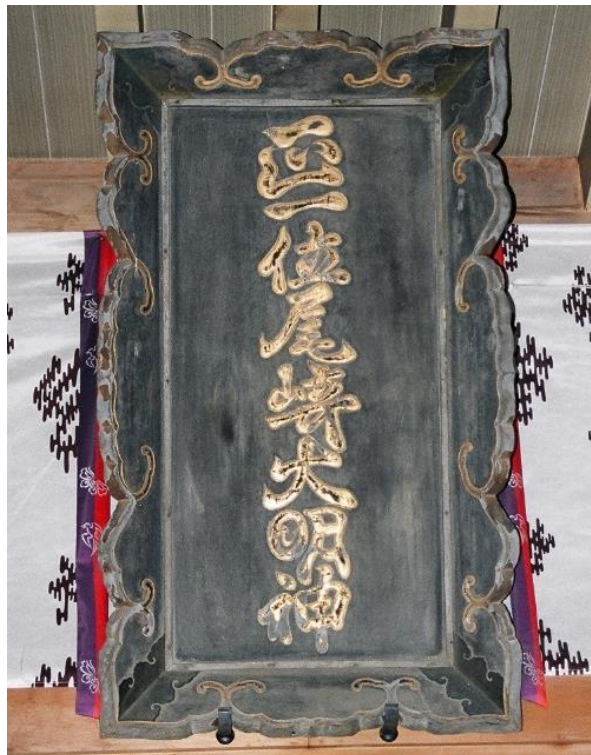 正一位尾崎大明神